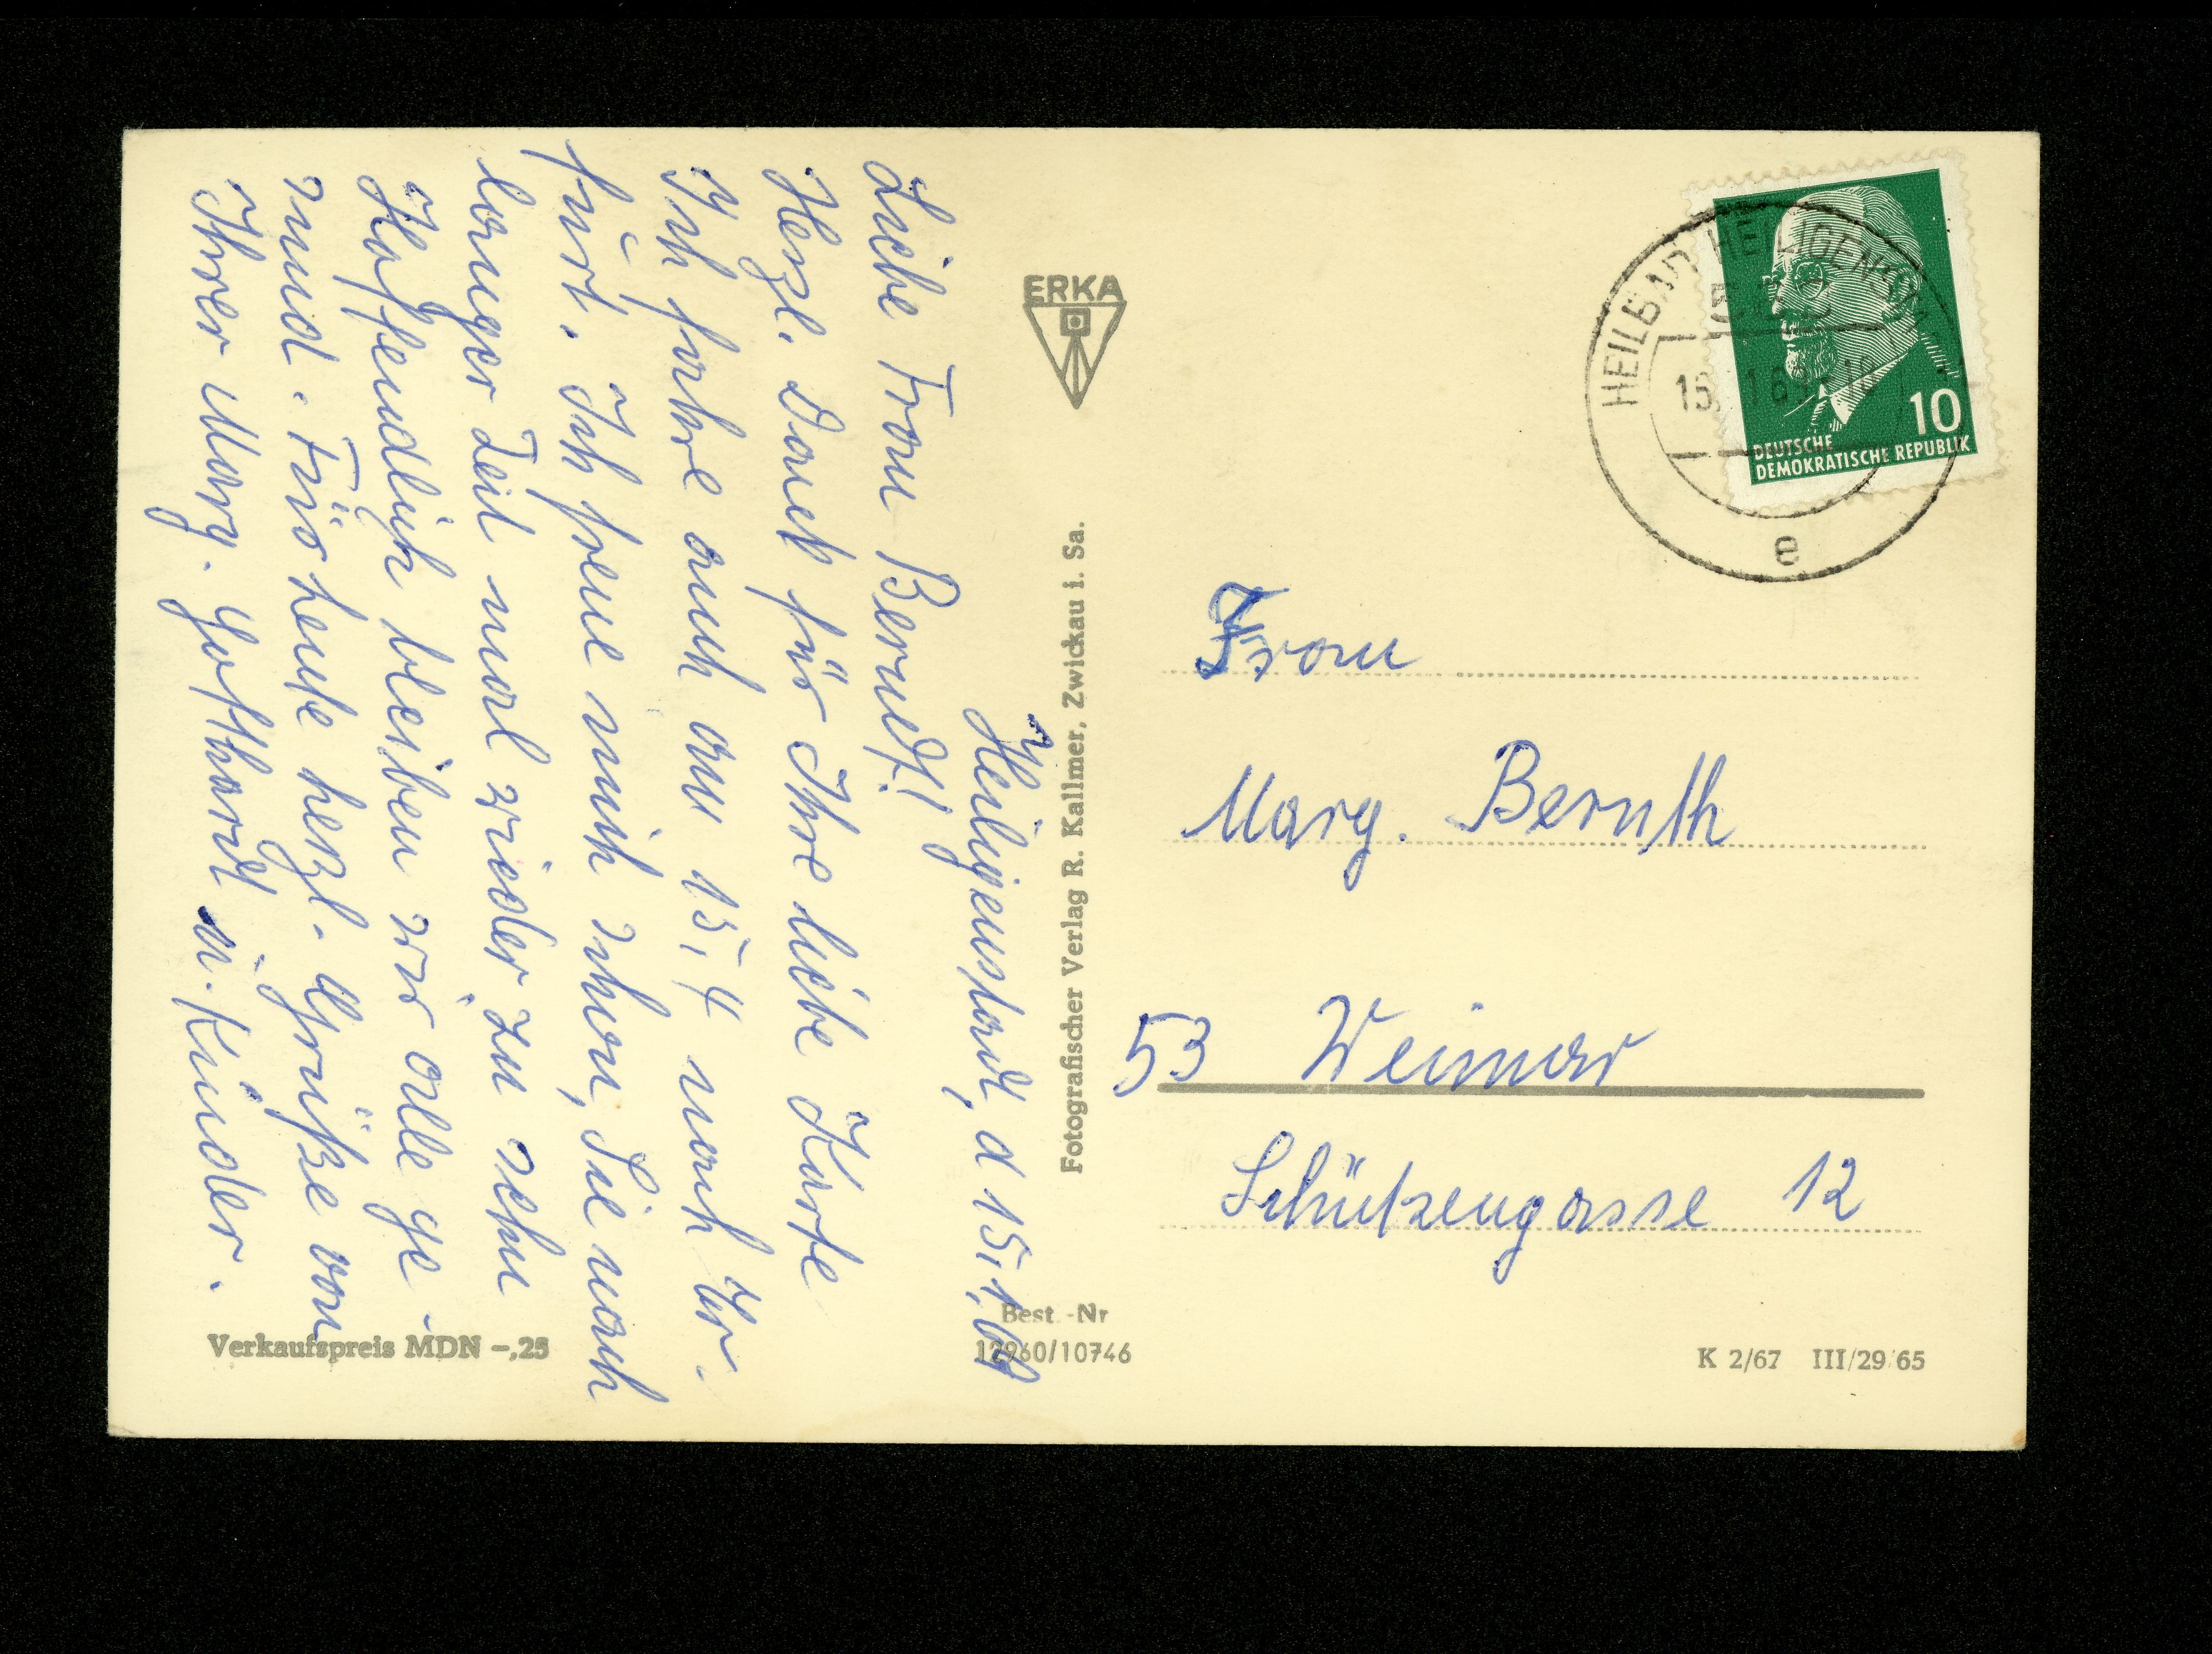 Heiligenstadt, d 15.1.69
Liebe Frau Berndt!
Herzl. Dank für Ihre liebe Karte
Ich fahre auch am 15.4 nach Er-
furt. Ich freue mich schon, Sie nach
langer Zeit mal wieder zu sehn
Hoffendlich bleiben wir alle ge-
sund. Für heute herzl. Grüße von
Ihrer Marg. Gotthardt u. Kinder.
ERKA
Fotografischer Verlag R. Kallmer, Zwickau i. Sa.
HEILBAD HEILIGENSTADT
10
DEUTSCHE
DEMOKRATISCHE REPUBLIK
e
Frau
Marg. Bernth
53 Weimar
Schützengasse 12
Verkaufspreis MDN -,25
Best.-Nr
12960/10746
K 2/67 III/29/65